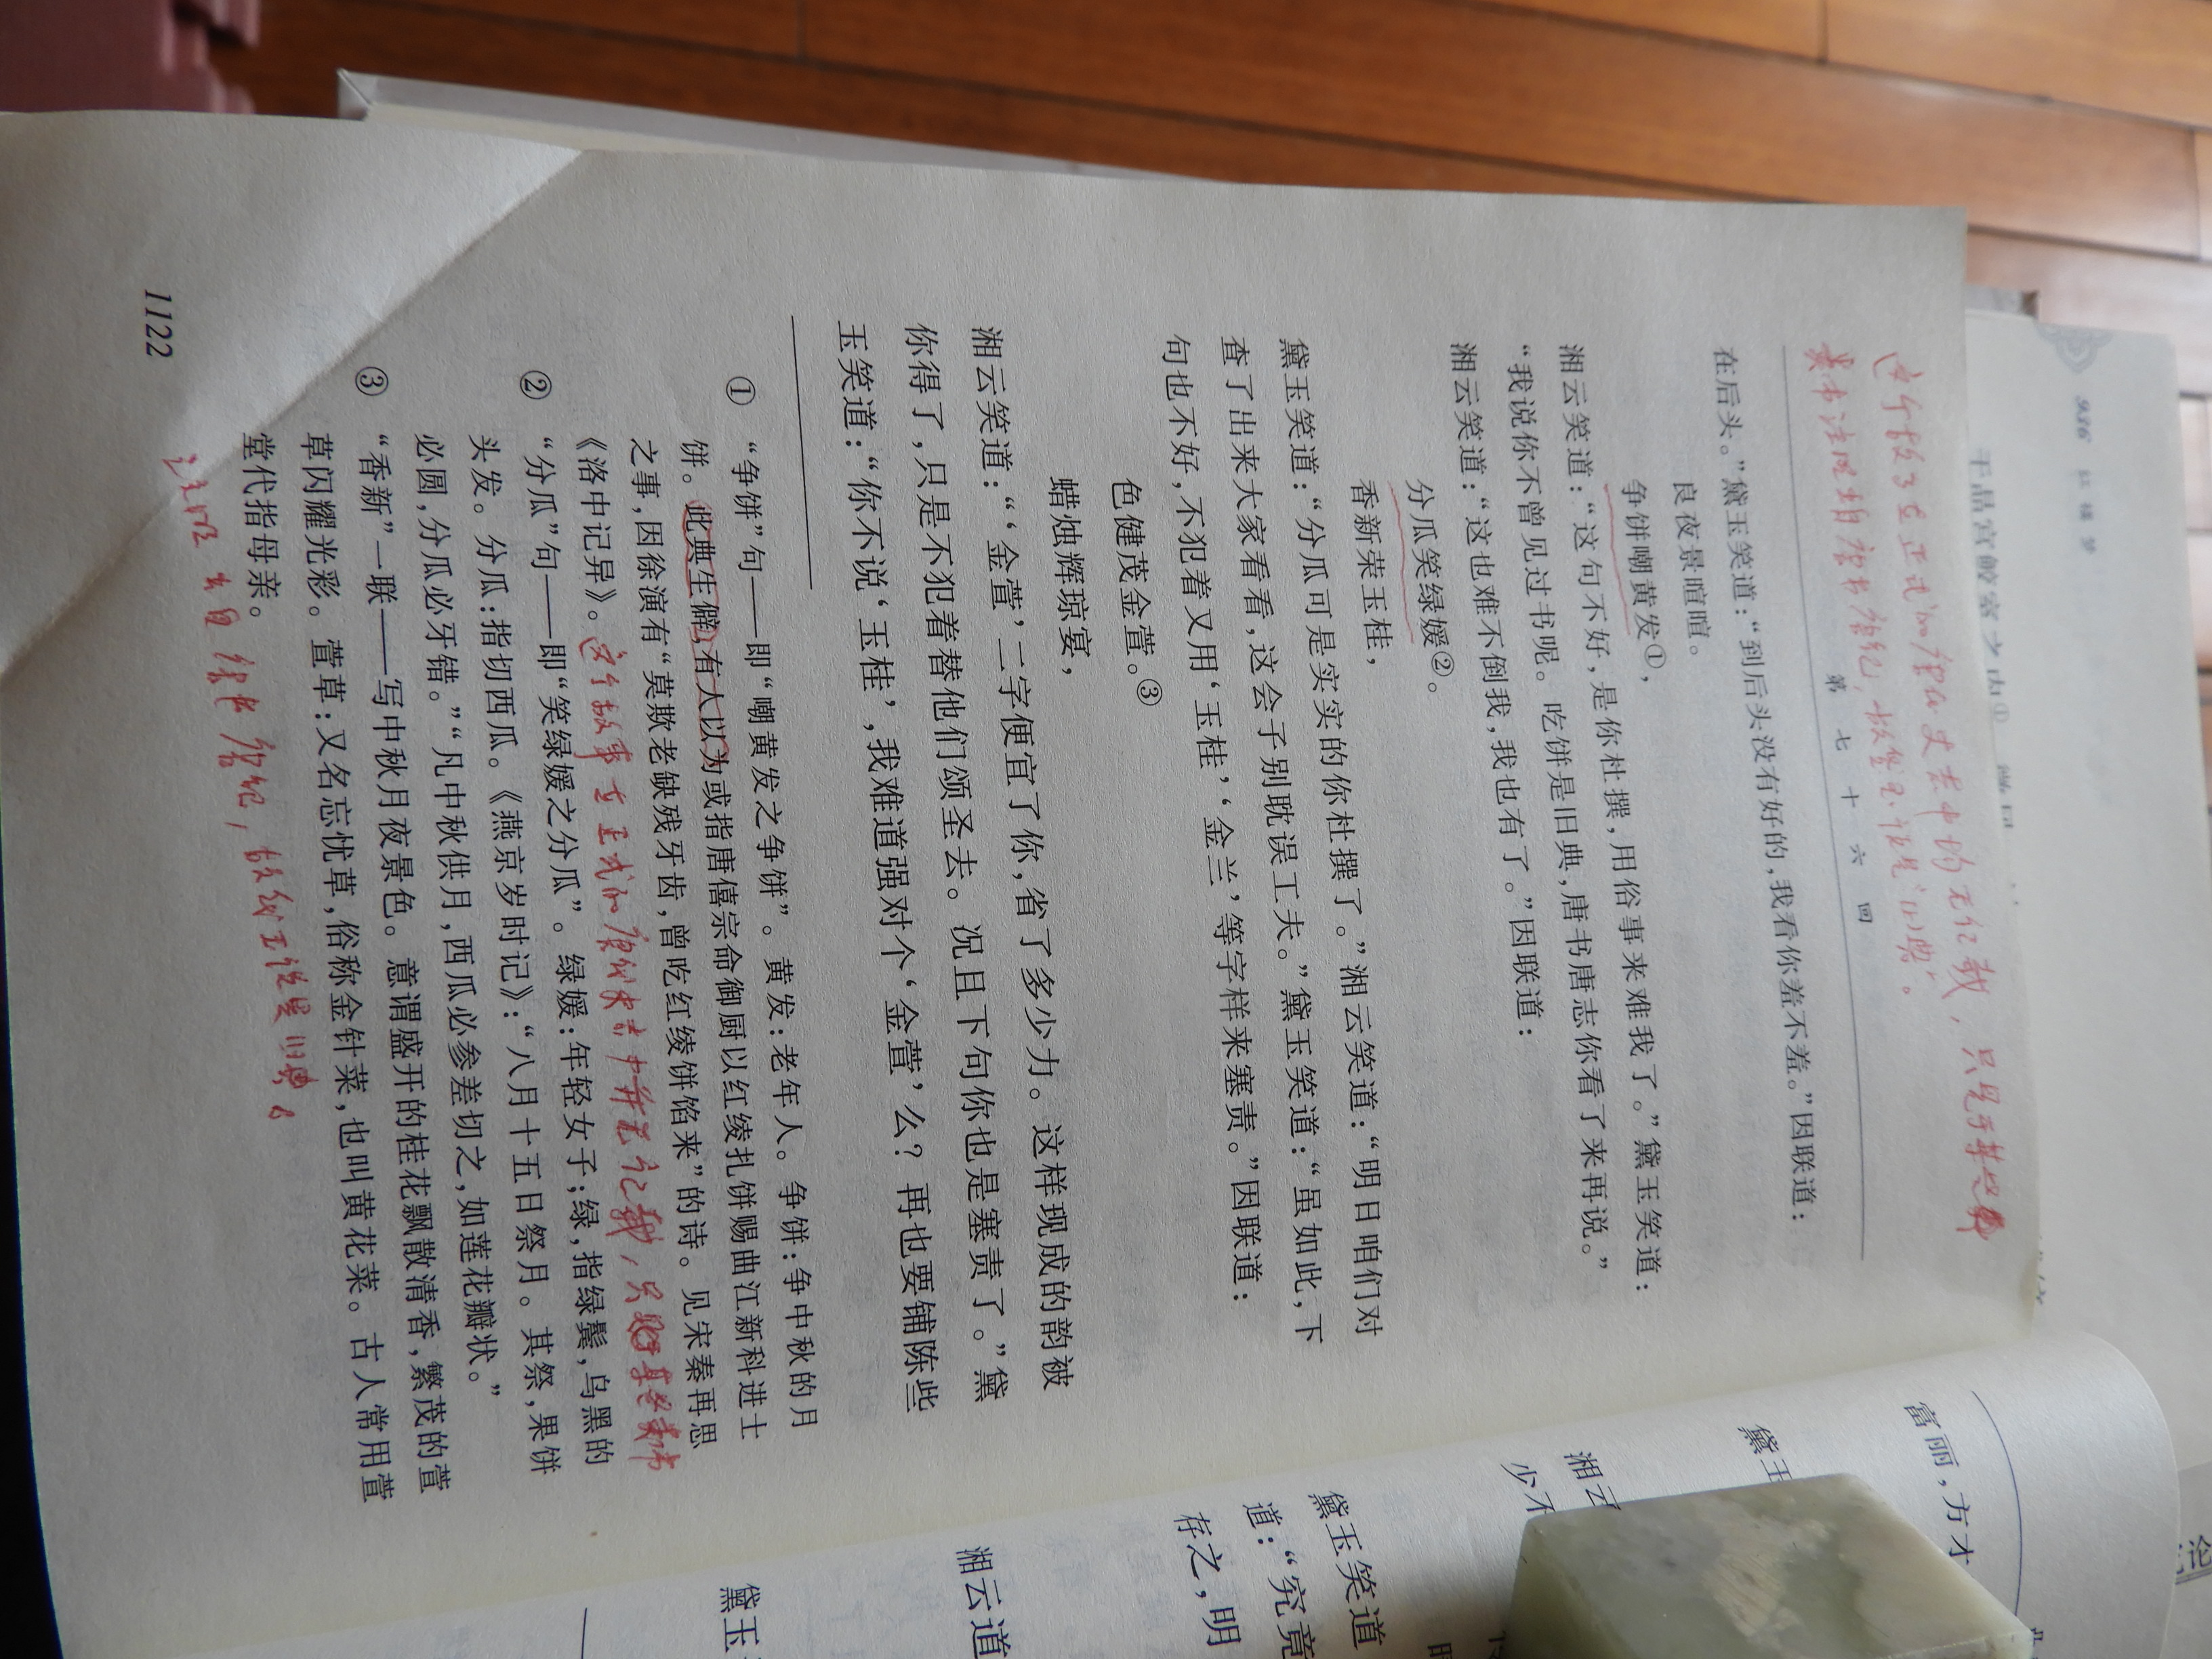 936 红楼梦
第七十六回
在后头。”黛玉笑道：“到后头没有好的，我看你羞不羞。”因联道：
良夜景暄暄。
争饼嘲黄发①，
湘云笑道：“这句不好，是你杜撰，用俗事来难我了。”黛玉笑道：
“我说你不曾见过书呢。吃饼是旧典，唐书唐志你看了来再说。”
湘云笑道：“这也难不倒我，我也有了。”因联道：
分瓜笑绿媛②。
香新荣玉桂，
黛玉笑道：“分瓜可是实实的你杜撰了。”湘云笑道：“明日咱们对
查了出来大家看看，这会子别耽误工夫。”黛玉笑道：“虽如此，下
句也不好，不犯着又用‘玉桂’，‘金兰’，等字样来塞责。”因联道：
色健茂金萱。③
蜡烛辉琼宴，
湘云笑道：“‘金萱’，二字便宜了你，省了多少力。这样现成的韵被
你得了，只是不犯着替他们颂圣去。况且下句你也是塞责了。”黛
玉笑道：“你不说‘玉桂’，我难道强对个‘金萱’么？再也要铺陈些
①“争饼”句——即“嘲黄发之争饼”。黄发：老年人。争饼：争中秋的月
饼。此典生僻，有人以为或指唐僖宗命御厨以红绫扎饼赐曲江新科进士
之事，因徐演有“莫欺老缺残牙齿，曾吃红绫饼馅来”的诗。见宋秦再思
《洛中记异》。这个故事在正式的唐代史书中并无记载，只
②“分瓜”句——即“笑绿媛之分瓜”。绿媛：年轻女子；绿，指绿鬓，乌黑的
头发。分瓜：指切西瓜。《燕京岁时记》：“八月十五日祭月。其祭，果饼
必圆，分瓜必牙错。”“凡中秋供月，西瓜必参差切之，如莲花瓣状。”
③“香新”一联——写中秋月夜景色。意谓盛开的桂花飘散清香，繁茂的萱
草闪耀光彩。萱草：又名忘忧草，俗称金针菜，也叫黄花菜。古人常用萱
堂代指母亲。
1122
富丽，方才
黛玉
湘云
少不
黛玉笑道
道：“究竟
存之，明
湘云道
黛玉